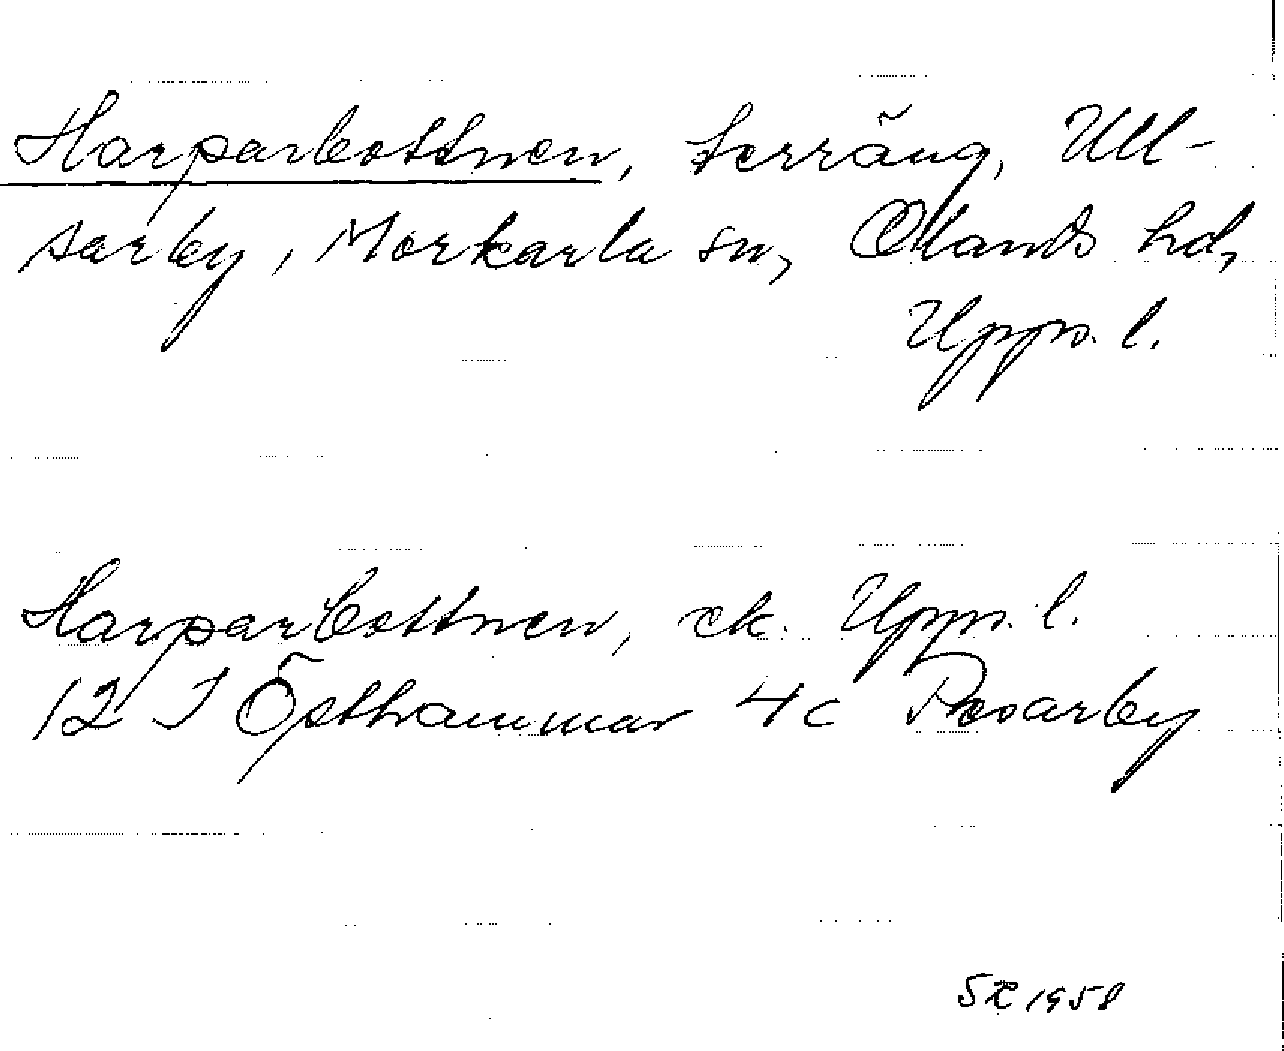 Harparbottnen, terräng, Ull-
sarby, Morkarla sn, Olands hd,
Upps. l.
Harparbottnen, ek. Upps. l.
12 I Östhammar 4c Pesarby
SR 1958